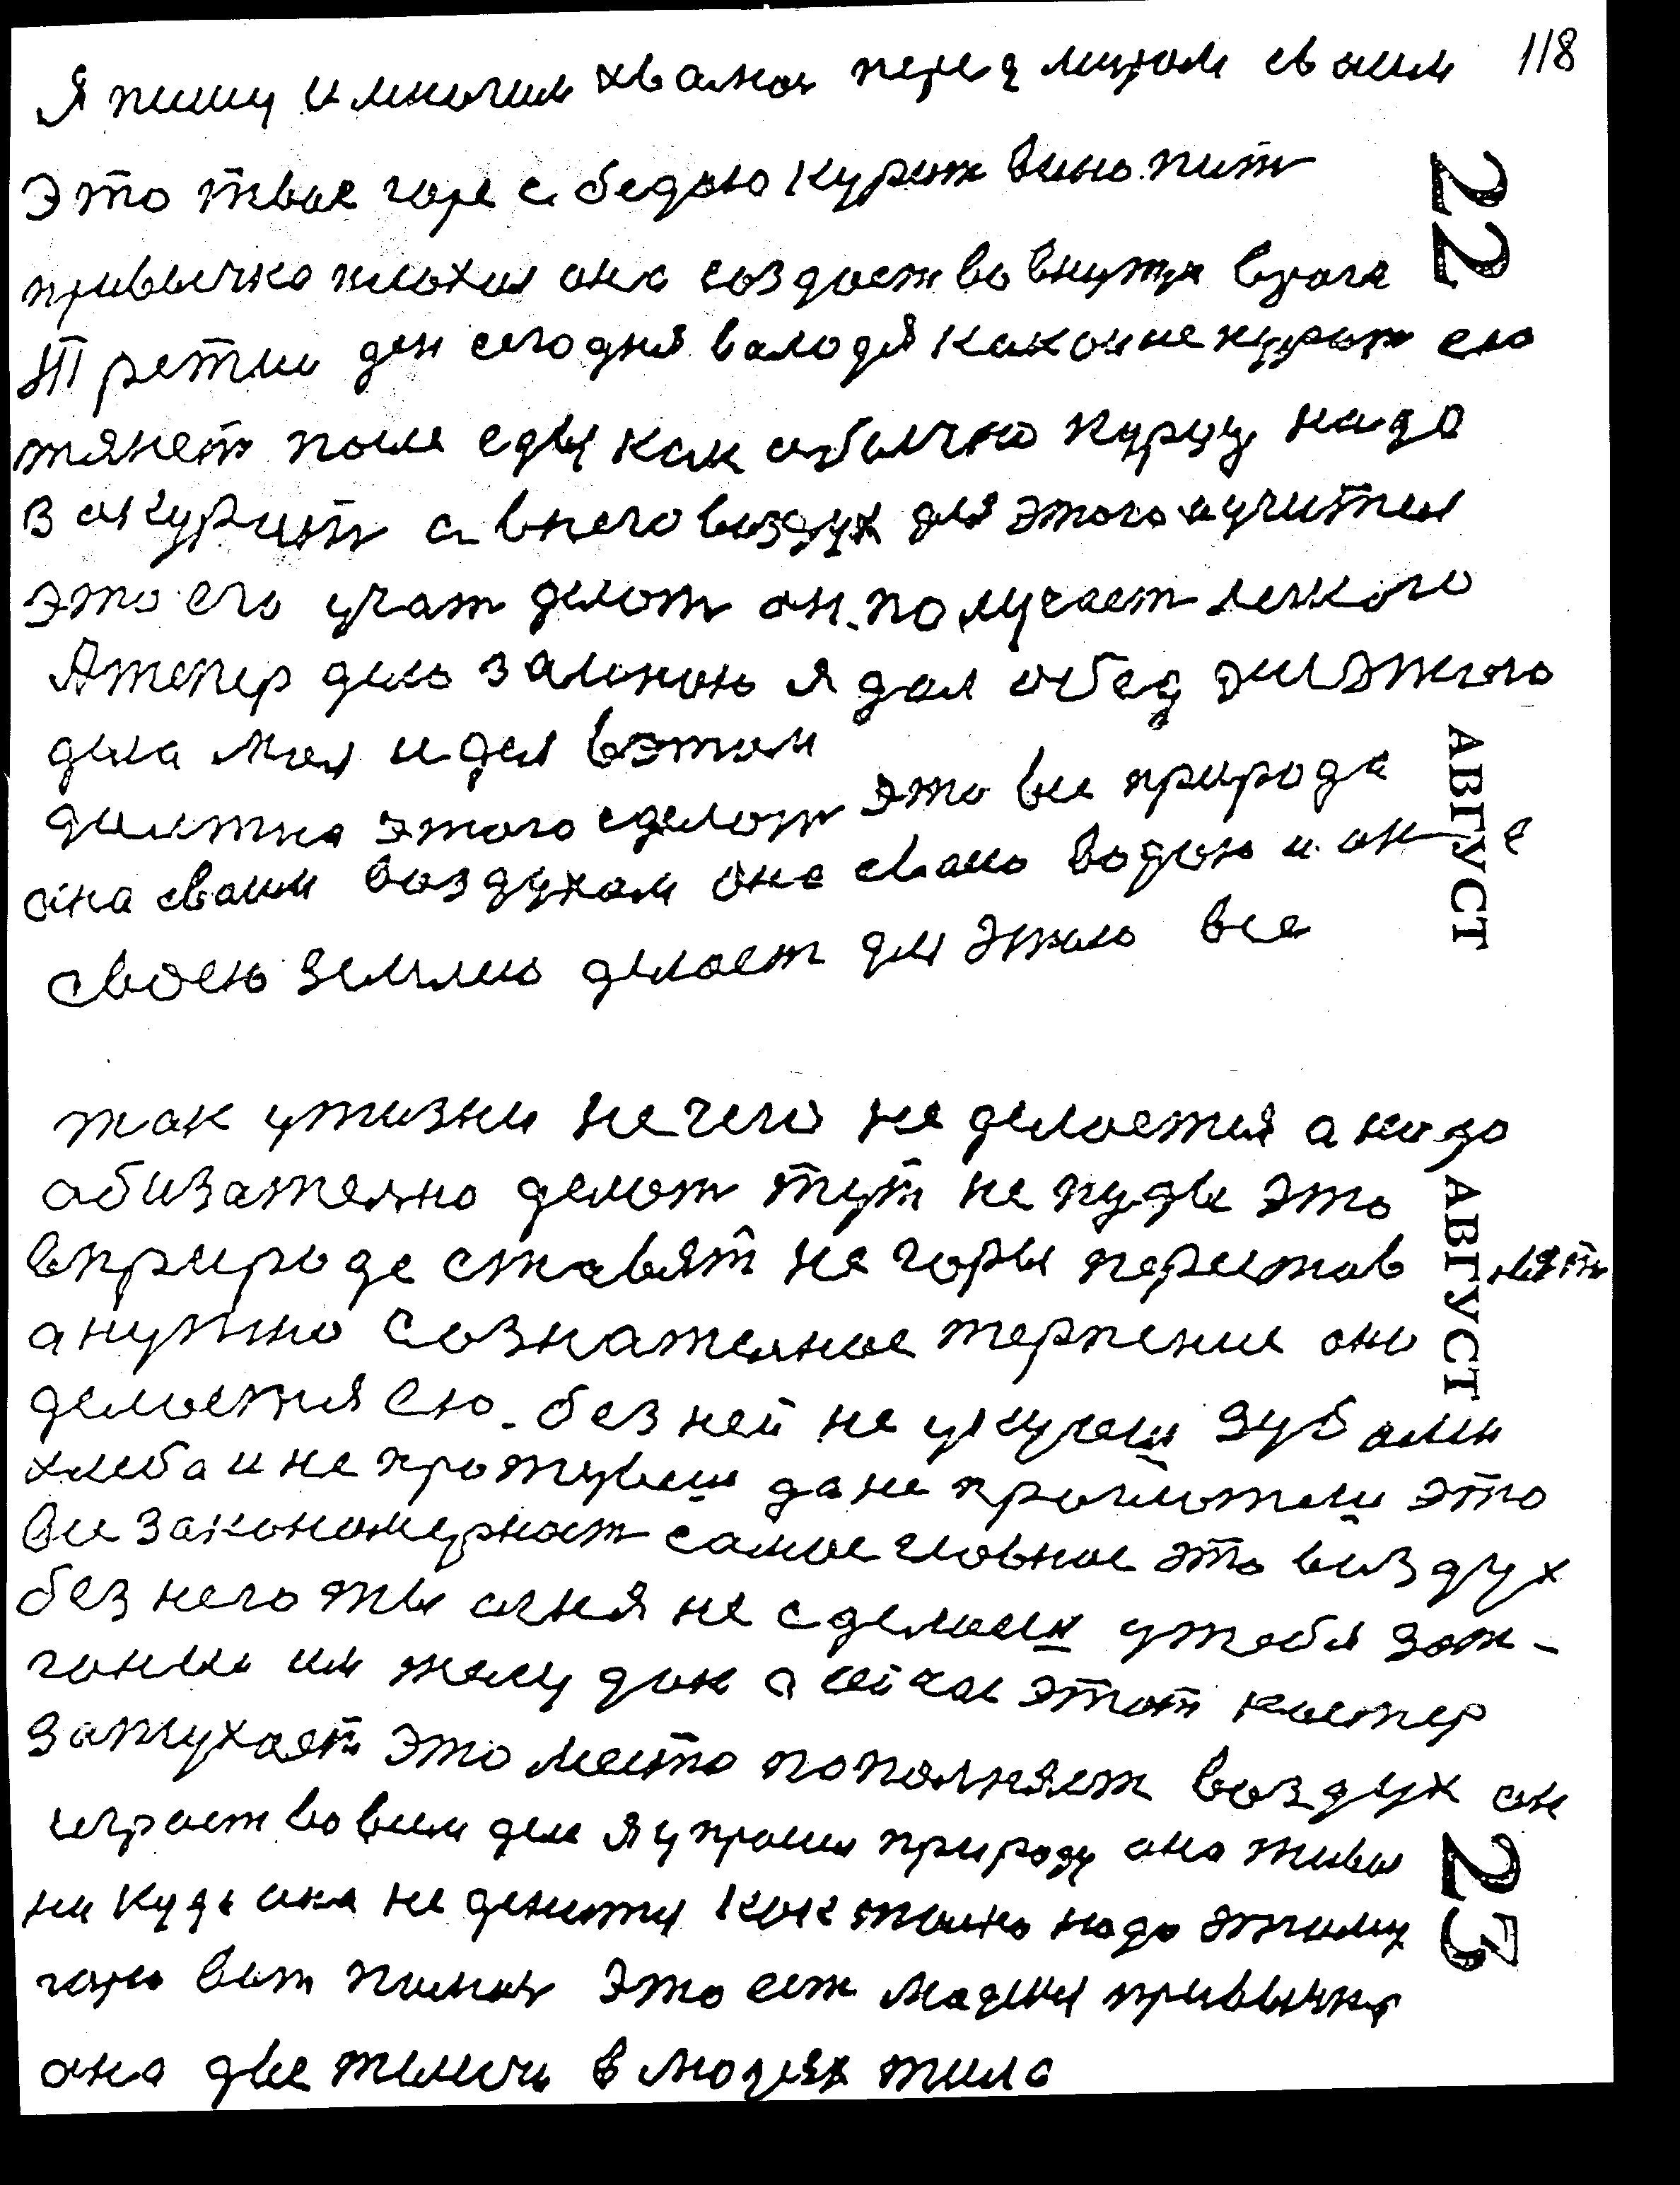 Я пишу и многим хвалюсь перед миром своим 118
это твое горе с бедою курит вино пит
привычка плохая она создает во внутри врага
Третии ден сегодня валодя какои не курит ею
тянет после еды как обычно курцу надо
закурит а в него воздух для этого мучител
это его учат делат он получает легкого
А тепер дело за мною я дал обед для этого
дела моя идея в этом
это все природа
она своим воздухам она своею водою и она
своею землею делает для этого все
22
АВГУСТ
так у жизни нечего не делается а надо
обизателно делат тут не пуды это
в природе ставят не горы перестав ляют
а нужно сознателное терпение оно
делается ею без ней не укусеш зубами
хлеба и не прожувеш да не проглотеш это
все закономерност самое главное это воздух
без него ты огня не сделаеш у тебя зож-
женыи им желудок а сеичас этот костер
затухает это место пополняет воздух он
играет во всем деле я упросил природу она жива
ни куда она не денится как толко надо этому
горю вот помоч это ест людская привычка
она две тысячи в людях жила
АВГУСТ
23